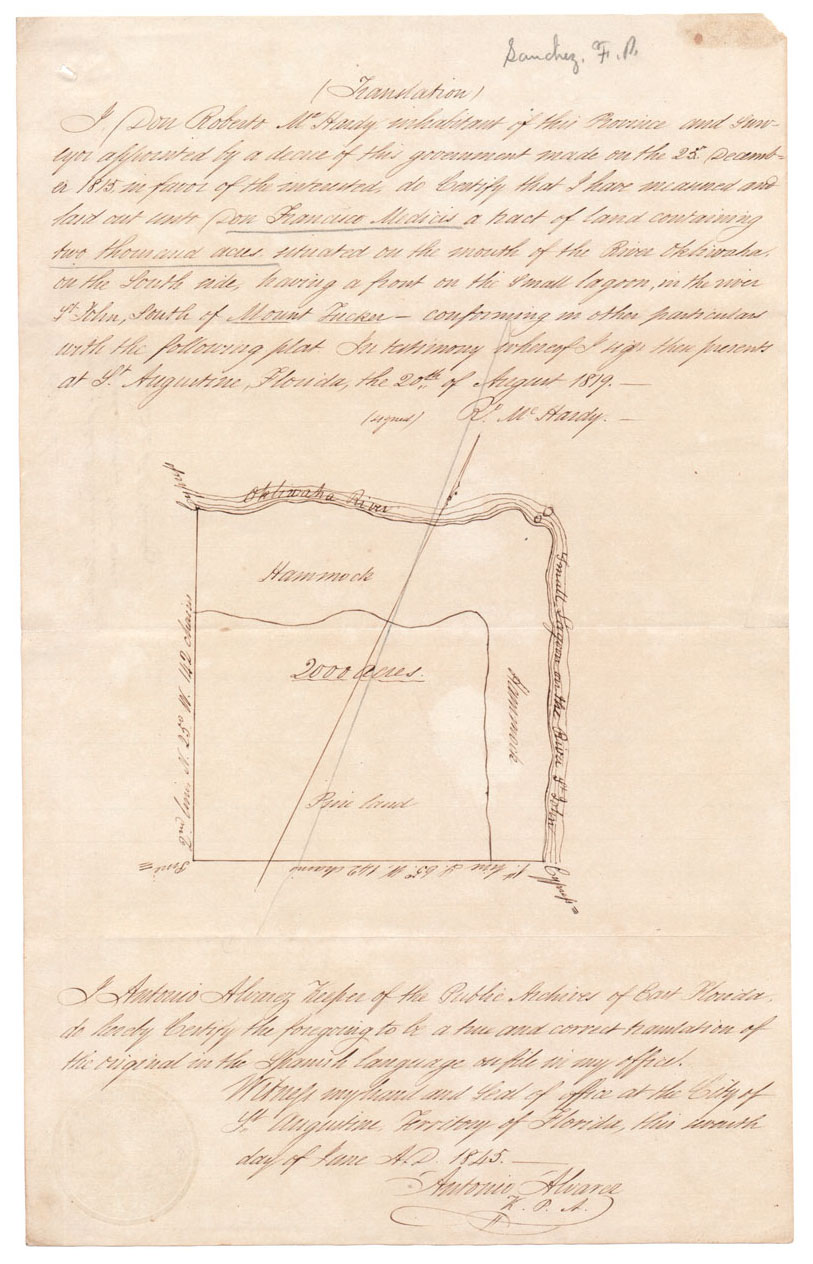 Sanchez, F. P.
(Translation)
I Don Roberto McHardy inhabitant of this Province and Surv-
eyor appointed by a decree of this government made on the 25. Decemb-
er 1815, in favor of the interested, do Certify that I have measured and
laid out unto Don Francisco Medicis a tract of land containing
two thousand acres situated on the mouth of the River Okliwaha,
on the South side, having a front on the Small lagoon, in the river
St. John, South of Mount Tucker — conforming in other particulars
with the following plat. In testimony whereof I sign these presents
at St. Augustine, Florida, the 20th of August 1819. —
(signed) Rt. McHardy. —
Cypress
Okliwaha River
Hammock
Small Lagoon on the River St. John
2000 acres.
Hammock
2nd line, N. 25° W. 142 chains
Pine land
Pine =
1st. line S. 65° W. 142 chains
Cypress =
I Antonio Alvarez Keeper of the Public Archives of East Florida,
do hereby Certify the foregoing to be a true and correct translation of
the original in the Spanish language on file in my office.
Witness my hand and Seal of office at the City of
St. Augustine, Territory of Florida, this
day of June A.D. 1845. —
Antonio Alvarez
K. P. A.